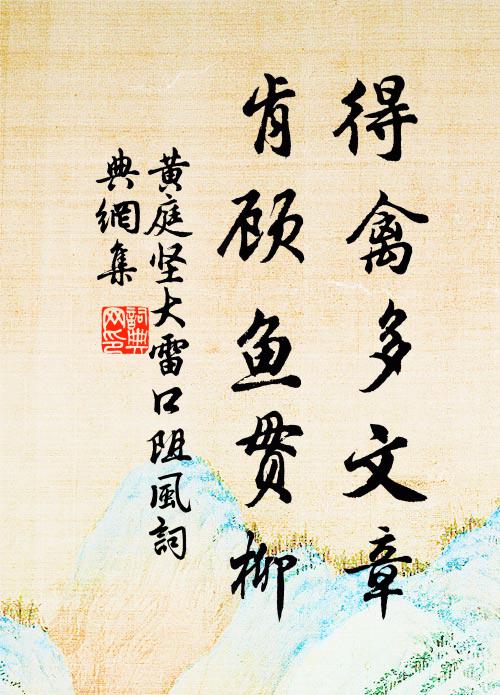 得禽多文章
肯顾鱼贯柳
黄庭坚大雷口阻风词
典網集
詞典网印